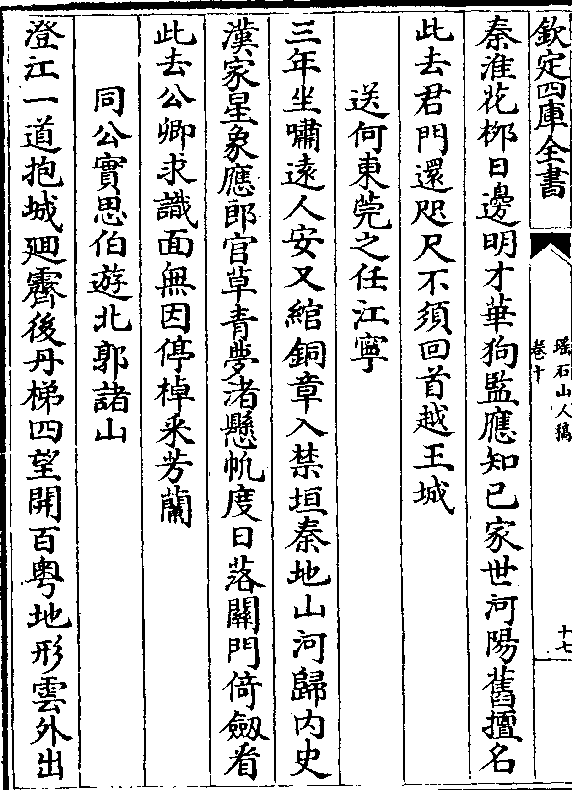 欽定四庫全書
瑤石山人稿
卷十
十七
秦淮花栁日邊明才華狗監應知已家世河陽舊擅名
此去君門還咫尺不須回首越王城
送何東莞之任江寧
三年坐嘯遠人安又綰銅章入禁垣秦地山河歸内史
漢家星象應郎官草青夢渚懸帆度日落關門倚劔看
此去公卿求識面無因停棹采芳蘭
同公實思伯遊北郭諸山
澄江一道抱城廻霽後丹梯四望開百粤地形雲外出